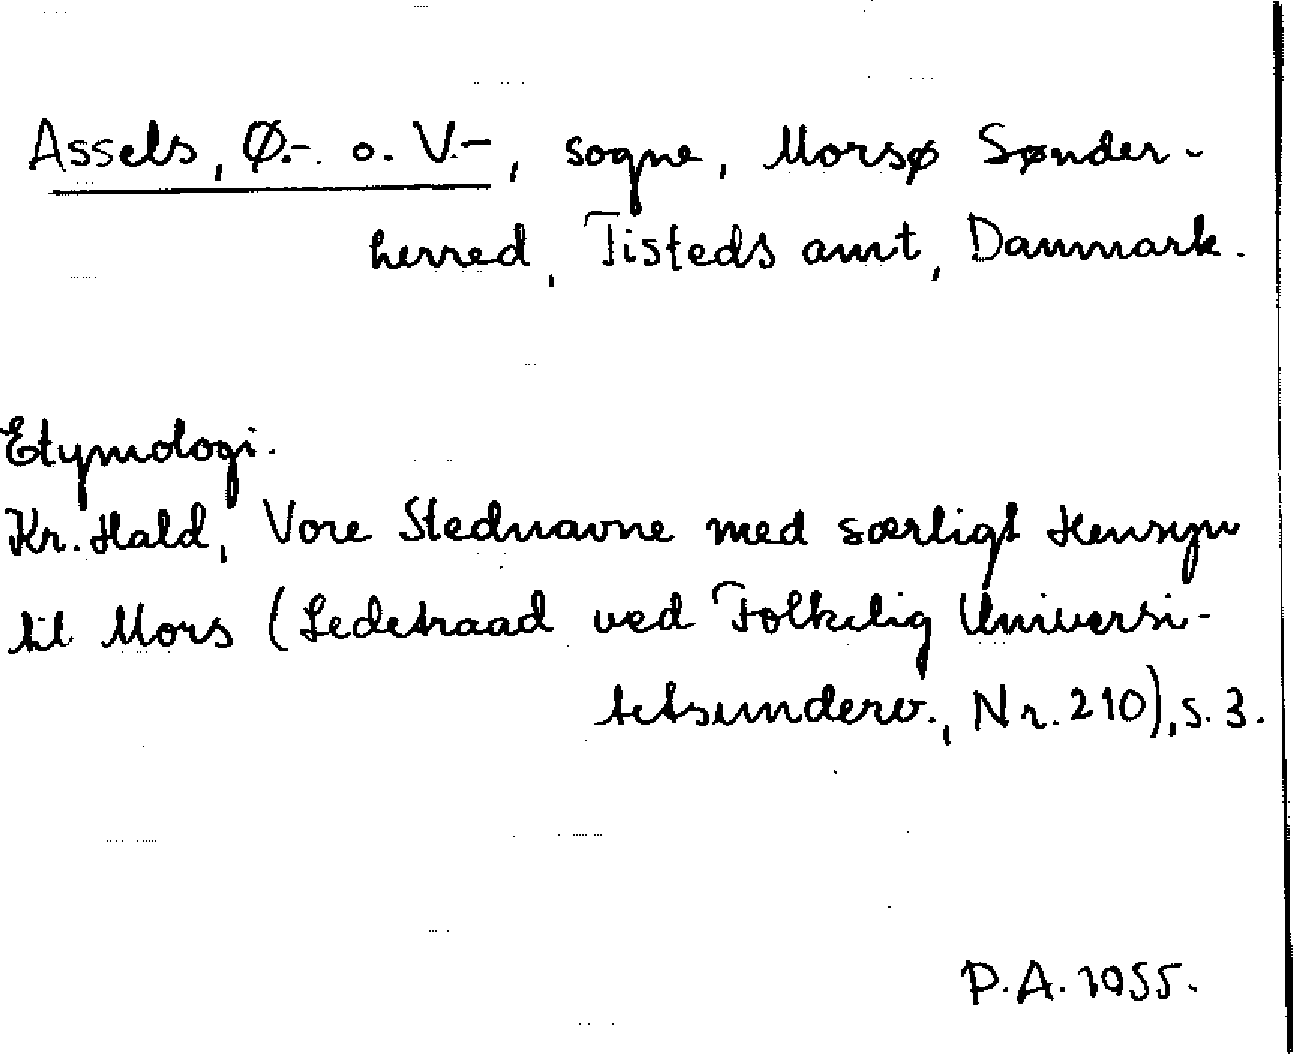 Assels, Ø.-. o. V.-, sogne, Morsø Sønder-
herred, Tisteds amt, Danmark.
Etymologi.
Kr. Hald, Vore Stednavne med særligt Hensyn
til Mors (Ledetraad ved Folkelig Universi-
tetsunderv., Nr. 210), s. 3.
P.A. 1955.